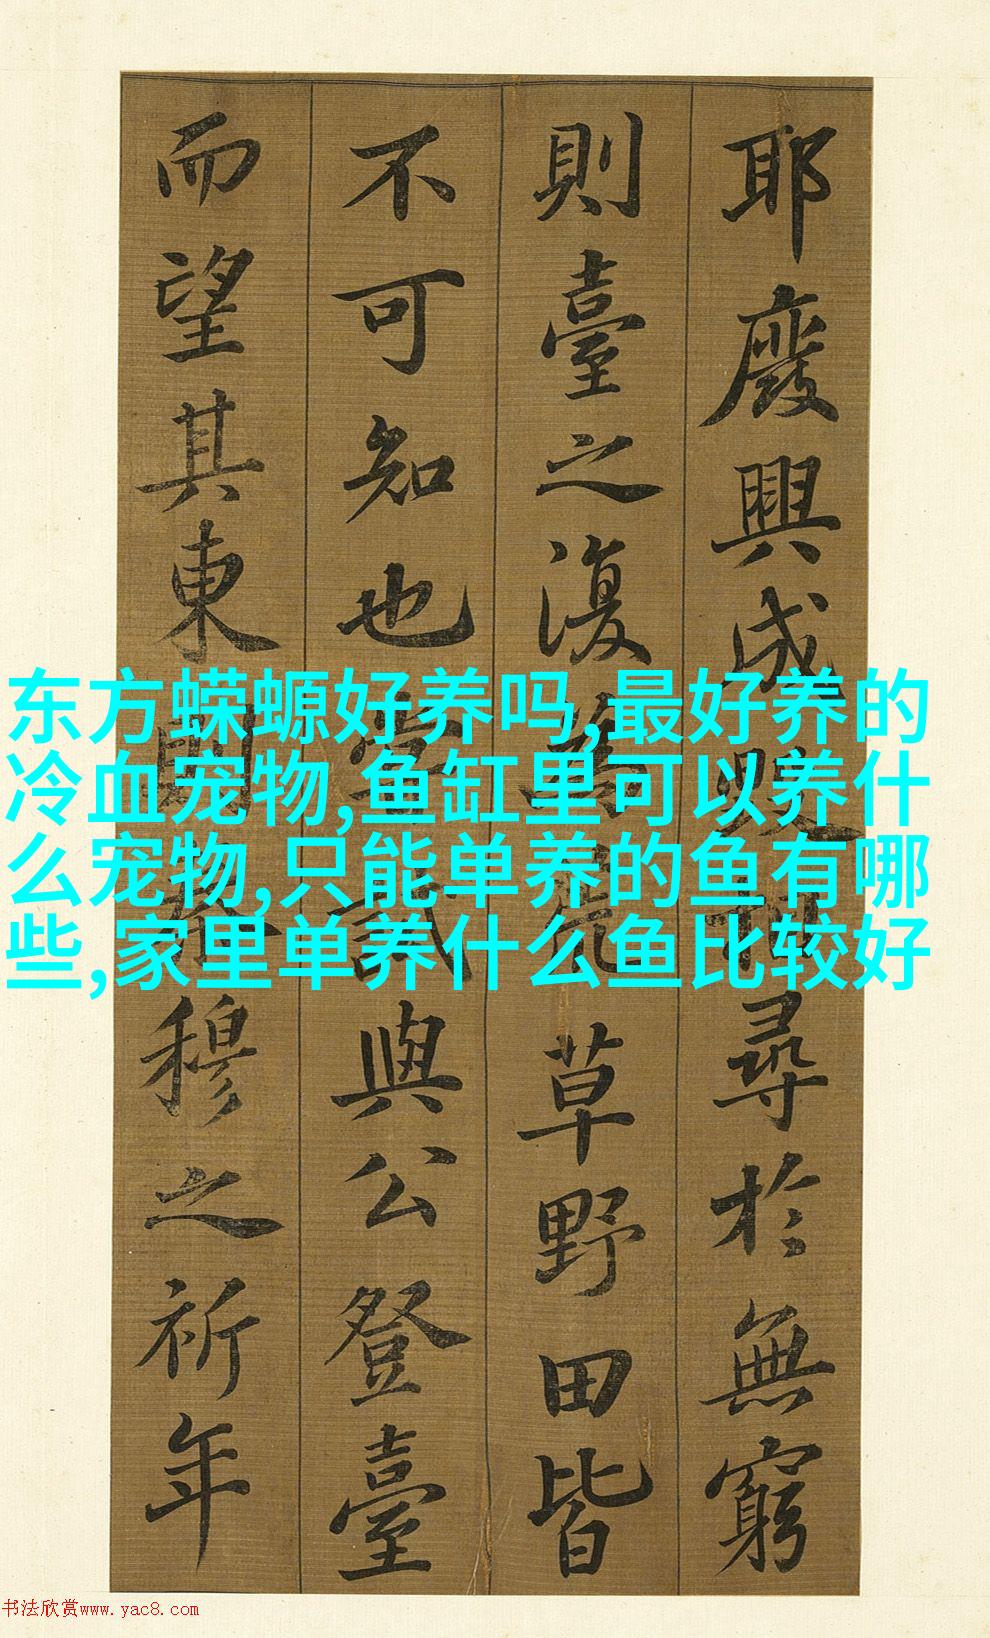 耶廢興成毀相尋於無窮
則臺之復為荒草野田皆
不可知也嘗試與公登臺
而望其東秦穆之祈年
东方蝾螈好养吗,最好养的
冷血宠物,鱼缸里可以养什
么宠物,只能单养的鱼有哪
些,家里单养什么鱼比较好
书法欣赏www.yac8.com